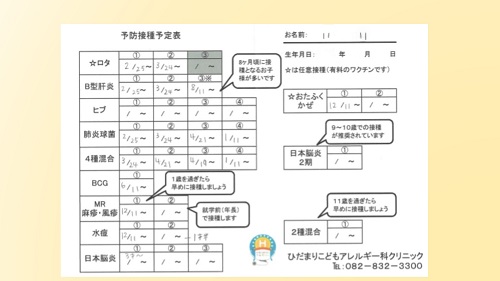 予防接種予定表
お名前: 11 11
生年月日: 年 月 日
☆は任意接種(有料のワクチンです)
① ② ③
☆ロタ 2/25~ 3/24~ / ~
① ② ③※
B型肝炎 2/25~ 3/24~ 8/11~
8ヶ月頃に接種となるお子様が多いです
① ② ③ ④
ヒブ / ~ / ~ / ~ / ~
① ② ③ ④
肺炎球菌 2/25~ 3/24~ 4/21~ 1/11~
① ② ③ ④
4種混合 3/24~ 4/21~ 1/11~
①
BCG 6/11~
1歳を過ぎたら
早めに接種しましょう
① ②
MR
麻疹・風疹 12/11~ / ~
就学前(年長)
で接種します
① ②
水痘 12/11~
① ② ③
日本脳炎 / ~ / ~
① ②
☆おたふく
かぜ 12/11~ / ~
9~10歳での接種
が推奨されています
①
日本脳炎
2期 / ~
11歳を過ぎたら
早めに接種しましょう
①
2種混合 / ~
ひだまりこどもアレルギー科クリニック
TEL:082-832-3300